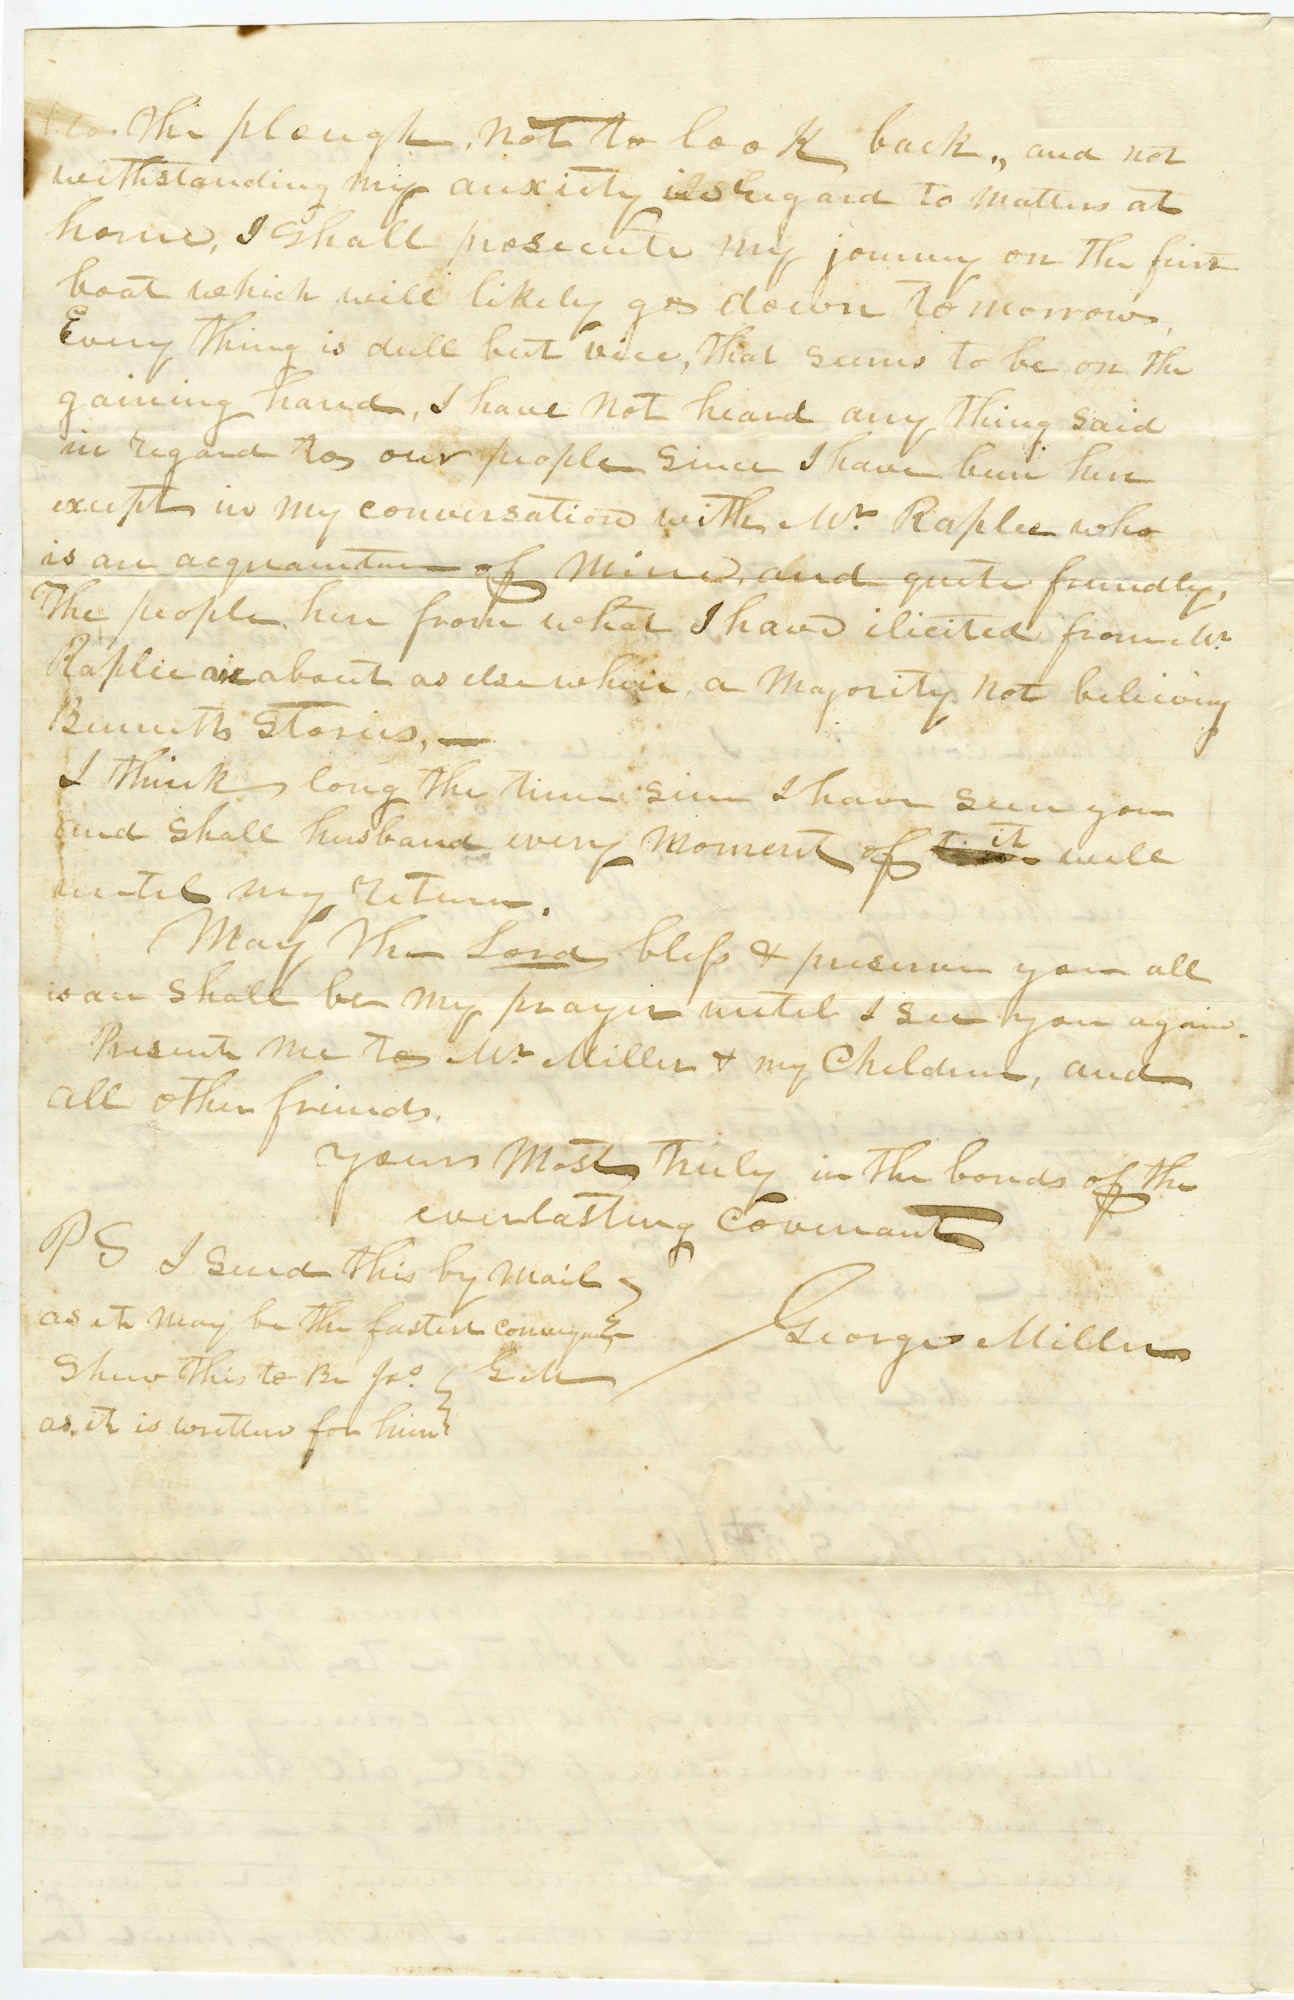 to the plough, not to look back,, and not
withstanding my anxiety in regard to matters at
home, I shall prosecute my journey on the first
boat which will likely go down tomorrow,
Every thing is dull but vice, that seems to be on the
gaining hand, I have not heard any thing said
in regard to our people since I have been here
except in my conversation with Mr. Raplee who
is an acquaintance of mine, and quite friendly,
The people here from what I have ilicited from Mr.
Raplee are about as else where, a majority not believing
Bennetts stories, —
I think long the time since I have seen you
and shall husband every moment of it well
until my return.
May the Lord bless & preserve you all
is an shall be my prayer until I see you again.
Present me to Mrs. Miller & my Children, and
all other friends.
yours Most truly in the bonds of the
everlasting Covenant
George Miller
PS I send this by mail
as it may be the fastest conveyance
G M
Shew this to Br Jos.
as it is written for him